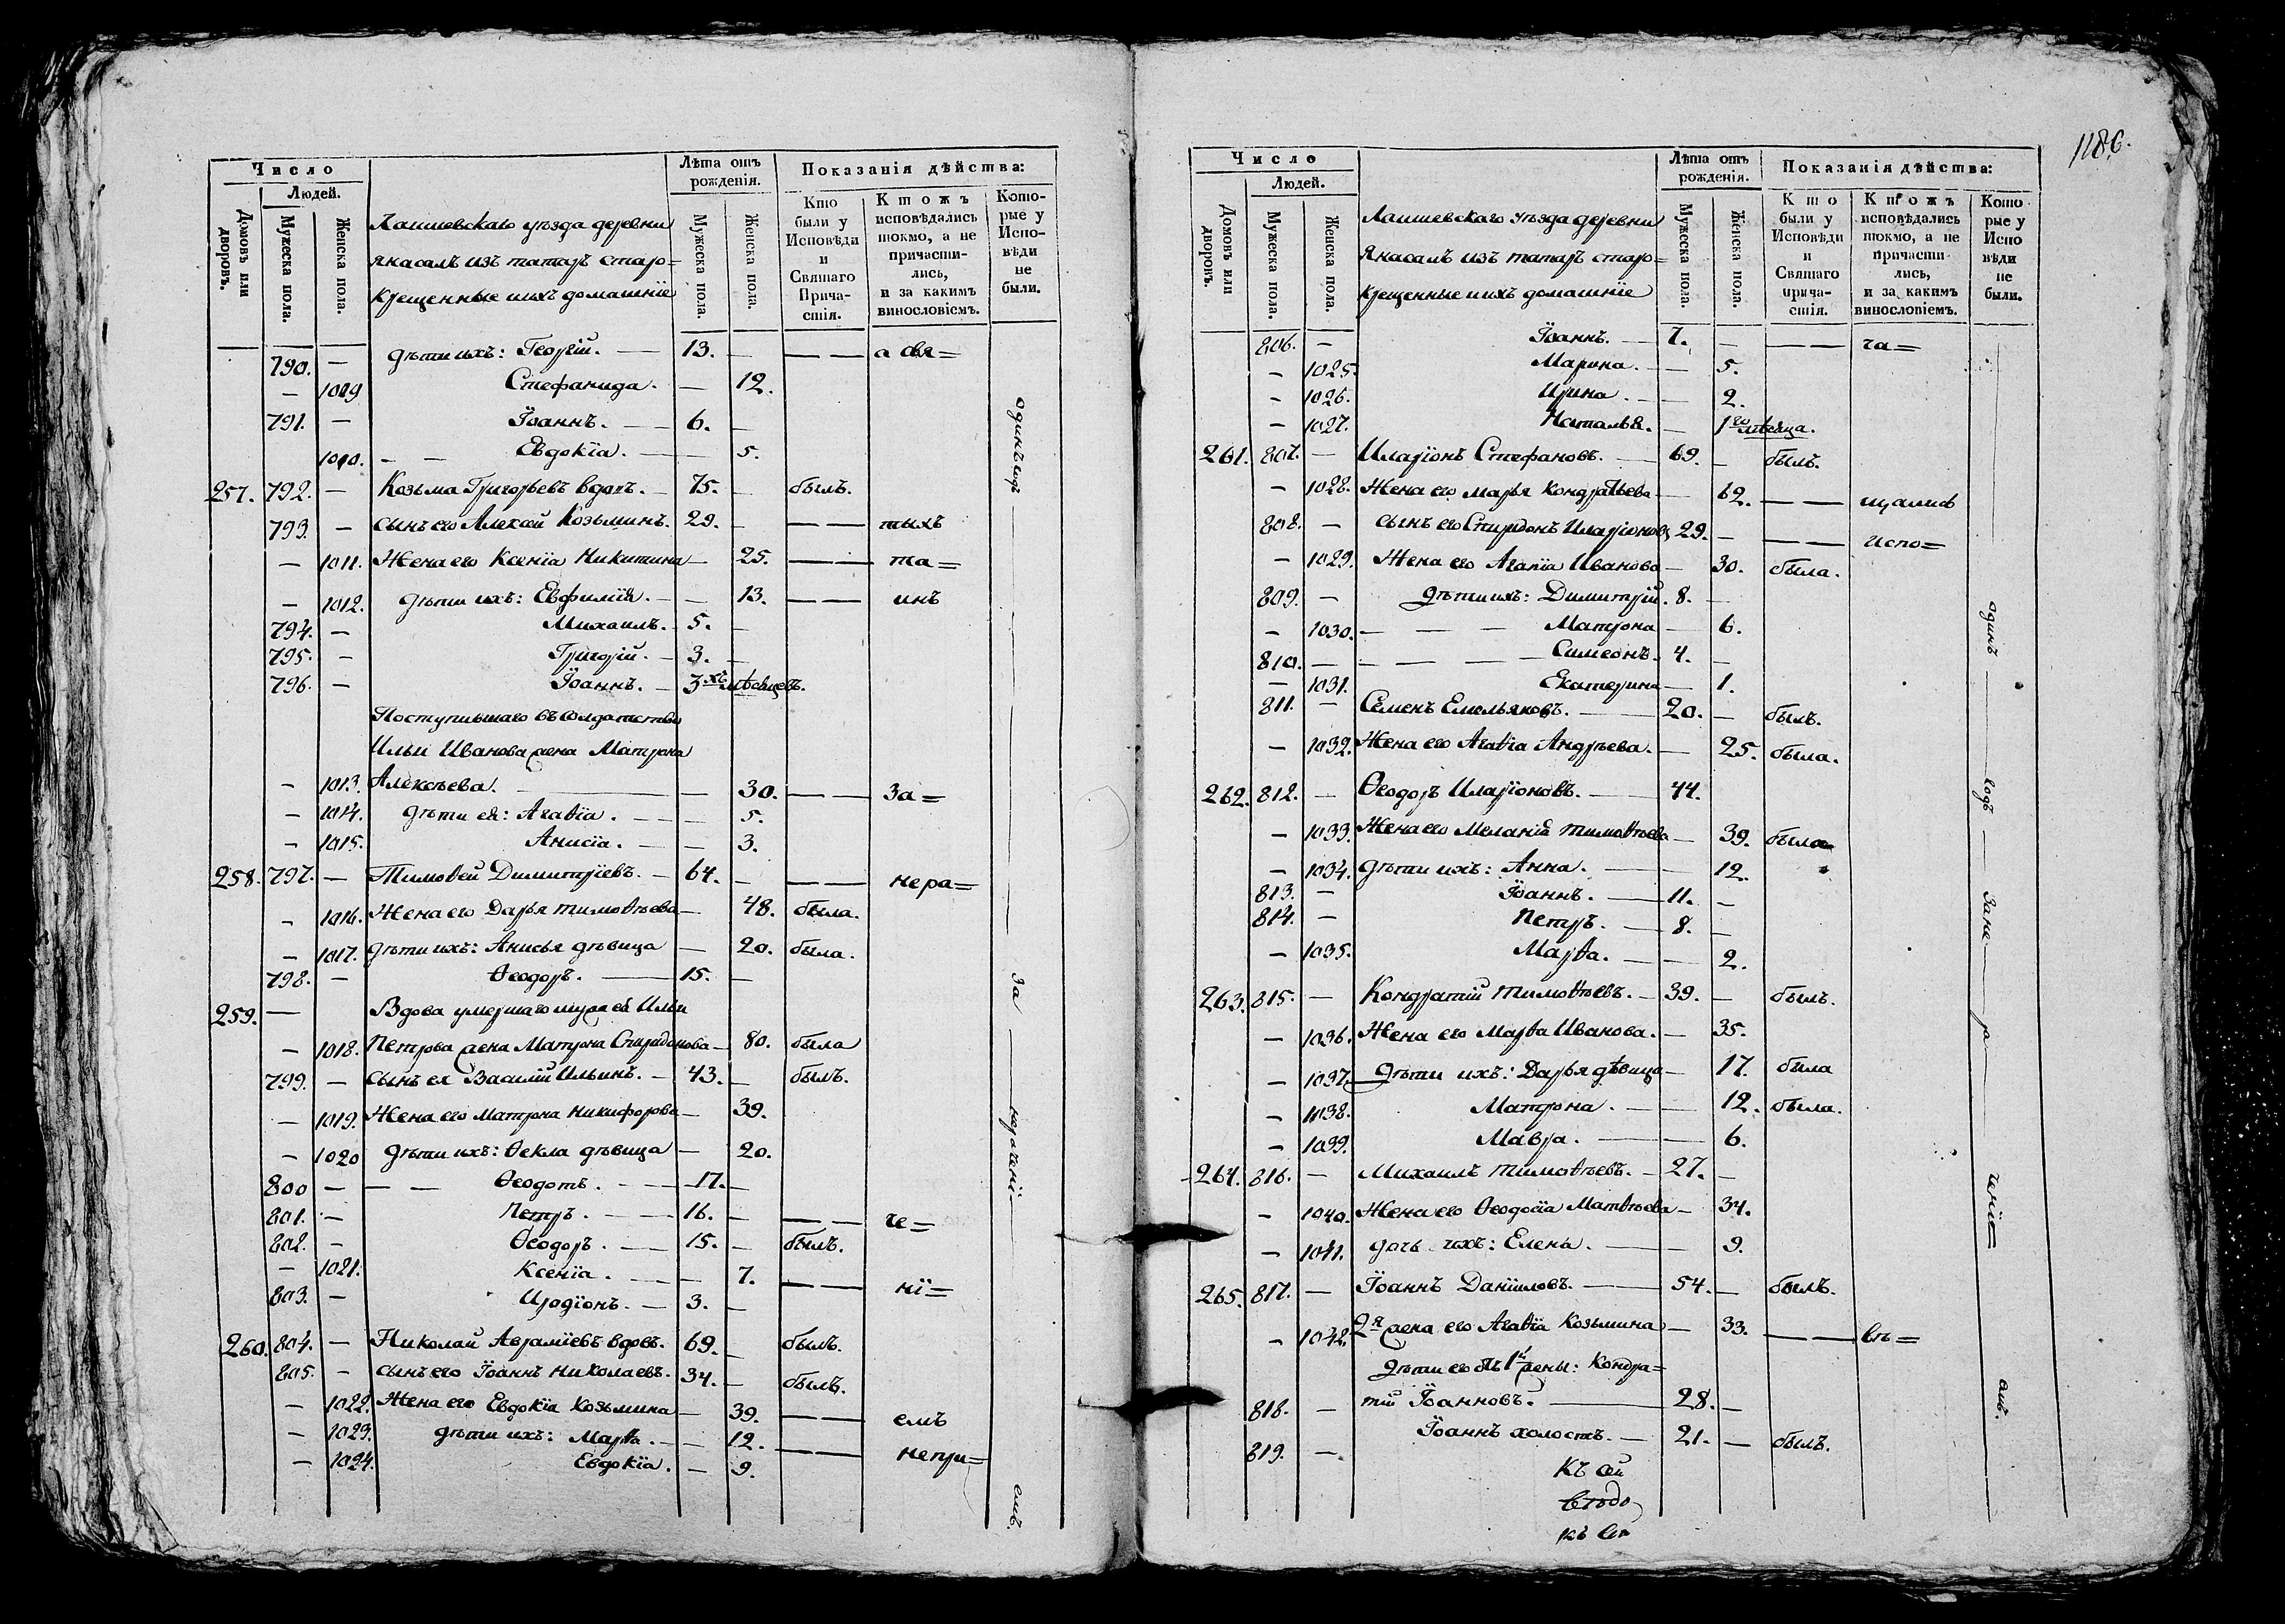 Число
Лѣта отъ рожденія.
Показанія дѣйства:
Домовъ или дворовъ.
Людей.
Мужеска пола.
Женска пола.
Лаишевскаго уѣзда деревни
Янасалъ изъ татаръ старо=
крещенные и ихъ домашніе
Мужеска пола.
Женска пола.
Кто были у Исповѣди и Святаго Прича-стія.
Ктожъ исповѣдались токмо, а не причасти-лись, и за какимъ винословіемъ.
Кото-рые у Испо-вѣди не были.
790. — дѣти ихъ: Георгій. — 13. — — — а свя=
— 1009 Стефанида. — 12.
791. — Іоаннъ. — 6. —
1010. — — Евдокіа. — 5.
257. 792. — Козьма Григорьевъ вдовъ. — 75. — былъ.
793. — сынъ его Алексѣй Козьминъ. 29. — — — тыхъ
— 1011. Жена его Ксеніа Никитина — 25. — — та=
— 1012. дѣти ихъ: Евфиміа. — — 13. — — инъ
794. — Михаилъ. — 5. —
795. — Григорій. — 3. —
796. — Іоаннъ. — 3хъ мѣсяцевъ.
Поступившаго въ солдатство
Ильи Иванова жена Матрона
— 1013. Алексѣева. — — 30. — — За=
— 1014. дѣти ея: Агаѳіа. — — 5.
— 1015. Анисіа. — — 3.
258. 797. — Тимоѳей Димитріевъ. — 64. — — — нера=
— 1016. Жена его Дарья Тимоѳѣева — 48. была.
— 1017. дѣти ихъ: Анисья дѣвица — 20. была.
798. — Ѳеодоръ. — 15. —
259. — Вдова умершаго мужа ея Ильи
— 1018. Петрова жена Матрона Спиридонова — 80. была
799. — сынъ ея Василій Ильинъ. — 43. — былъ.
— 1019. Жена его Матрона Никифорова — 39.
— 1020 дѣти ихъ: Ѳекла дѣвица — 20.
800 — — — Ѳеодотъ. — 17. —
801. — Петръ. — 16. — — — че=
802. — Ѳеодоръ. — 15. — былъ.
— 1021. Ксеніа. — — 7. — — ні=
803. — Иродіонъ. — 3. —
260. 804. — Николай Авраміевъ вдовъ. 69. — былъ.
805. — сынъ его Іоаннъ Николаевъ. 34. — былъ.
— 1022. Жена его Евдокіа Козьмина — 39. — — емъ
— 1023. дѣти ихъ: Марѳа. — — 12. — — непри=
— 1024. Евдокіа. — 9.
одинъ годъ — За — нераченi — емъ.
1186.
Число
Лѣта отъ рожденія.
Показанія дѣйства:
Домовъ или дворовъ.
Людей.
Мужеска пола.
Женска пола.
Лаишевскаго уѣзда деревни
Янасалъ изъ татаръ старо=
крещенные и ихъ домашніе
Мужеска пола.
Женска пола.
Кто были у Исповѣди и Святаго прича-стія.
Ктожъ исповѣдались токмо, а не причасти-лись, и за какимъ винословіемъ.
Кото рые у Испо вѣди не были.
806. — Іоаннъ. — 7. — — — ча=
— 1025. Марина. — 5.
— 1026. Ирина. — — 2.
— 1027. Наталья. — 1го мѣсяца.
261. 807. — Иларіонъ Стефановъ. — 69. — былъ.
— 1028. Жена его Марья Кондратьева — 62. — — щалися
808. — сынъ его Спиридонъ Иларіоновъ 29. — — — испо=
— 1029. Жена его Агапіа Иванова — 30. была.
809. — дѣти ихъ: Димитрій. 8. —
— 1030. — — — Матрона — 6.
810. — — — — Симеонъ. 4. —
— 1031. Екатерина — 1.
811. — Семенъ Емельяновъ. — 20. — былъ.
— 1032. Жена его Агаѳіа Андрѣева. — 25. была.
262. 812. — Ѳеодоръ Иларіоновъ. — 44.
— 1033. Жена его Меланіа Тимоѳѣева — 39. была
— 1034. дѣти ихъ: Анна. — — 12.
813. — Іоаннъ. — 11. —
814. — Петръ. — 8. —
— 1035. Марѳа. — — 2.
263. 815. — Кондратій Тимоѳѣевъ. — 39. — былъ.
— 1036. Жена его Марѳа Иванова. — 35.
— 1037. дѣти ихъ: Дарья дѣвица — 17. была
— 1038. Матрона. — — 12. была.
— 1039. Мавра. — — 6.
264. 816. — Михаилъ Тимоѳѣевъ. — 27. —
— 1040. Жена его Ѳеодосіа Матѳѣева — 34.
— 1041. дочь ихъ: Елена. — — 9.
265. 817. — Іоаннъ Даніиловъ. — 54. — былъ.
— 1042. 2я жена его Агаѳіа Козьмина — 33. — — въ=
дѣти его отъ 1й жены: Кондра=
818. — тій Іоанновъ. — 28. —
819. — Іоаннъ холостъ. — 21. — былъ.
одинъ — годъ — Зане — ра — чені= емъ.